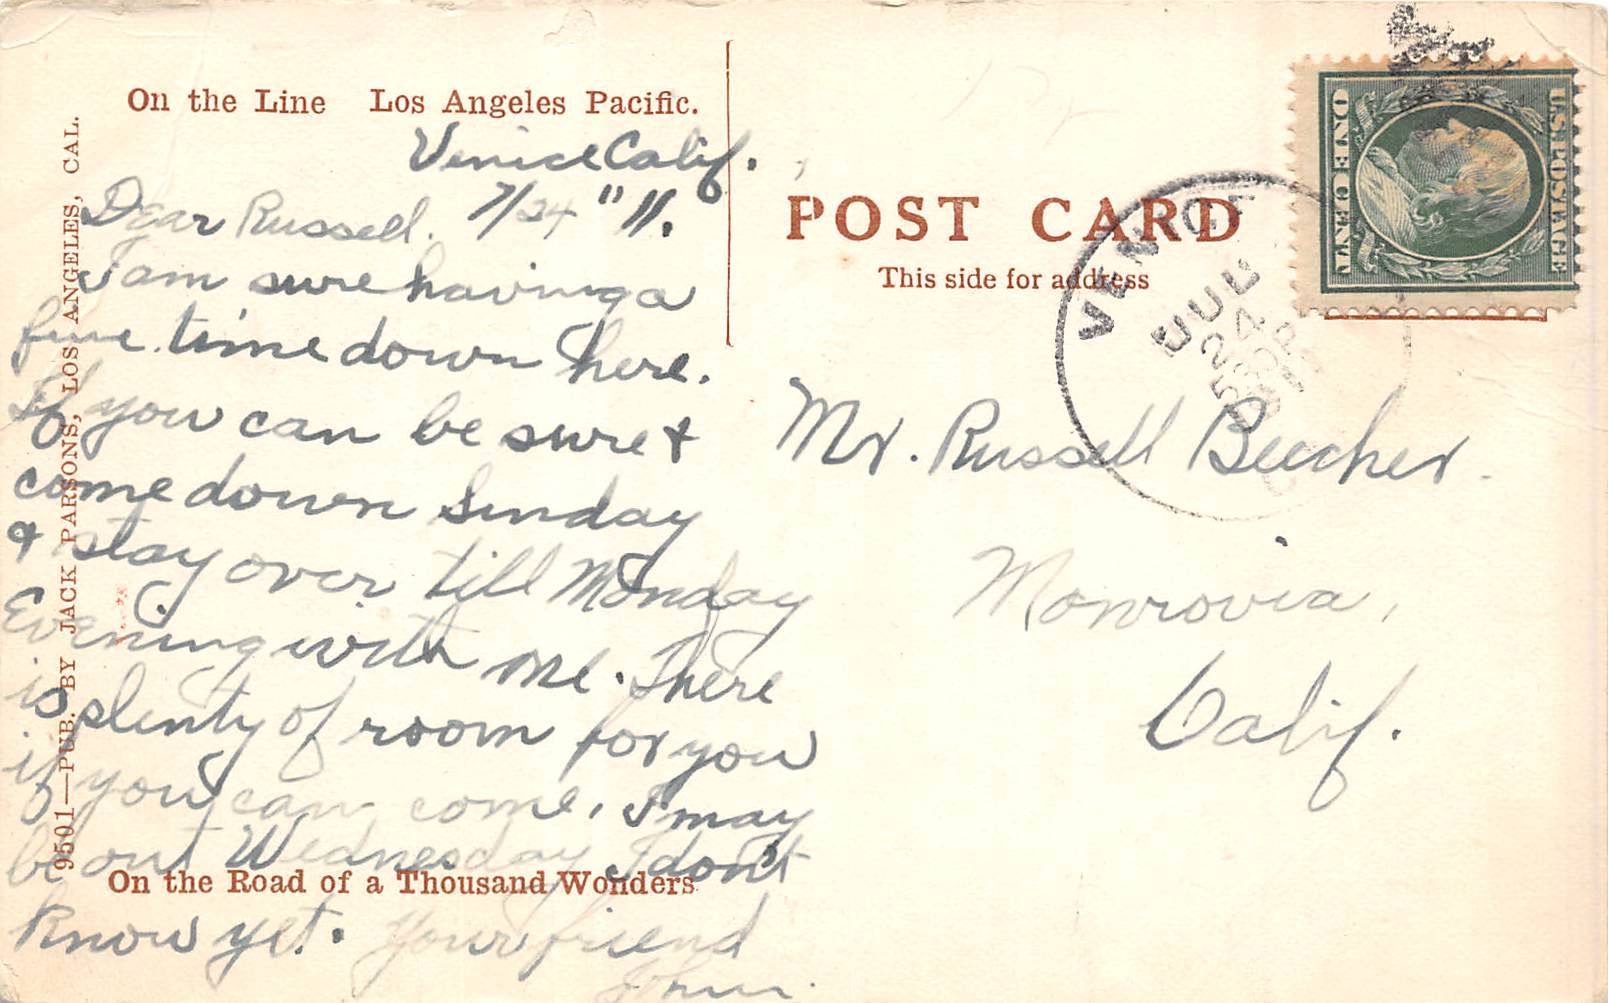 On the Line Los Angeles Pacific.
Venice Calif.
7/24 "11.
Dear Russell.
I am sure having a
fine time down here.
If you can be sure &
come down Sunday
& stay over till Monday
Evening with me. There
is plenty of room for you
if you can come. I may
be out Wednesday I don't
know yet. Your friend
John.
On the Road of a Thousand Wonders
9501—PUB. BY JACK PARSONS, LOS ANGELES, CAL.
POST CARD
This side for address
U.S. POSTAGE
ONE CENT
VENICE
JUL
24
530P
Mr. Russell Beecher.
Monrovia,
Calif.